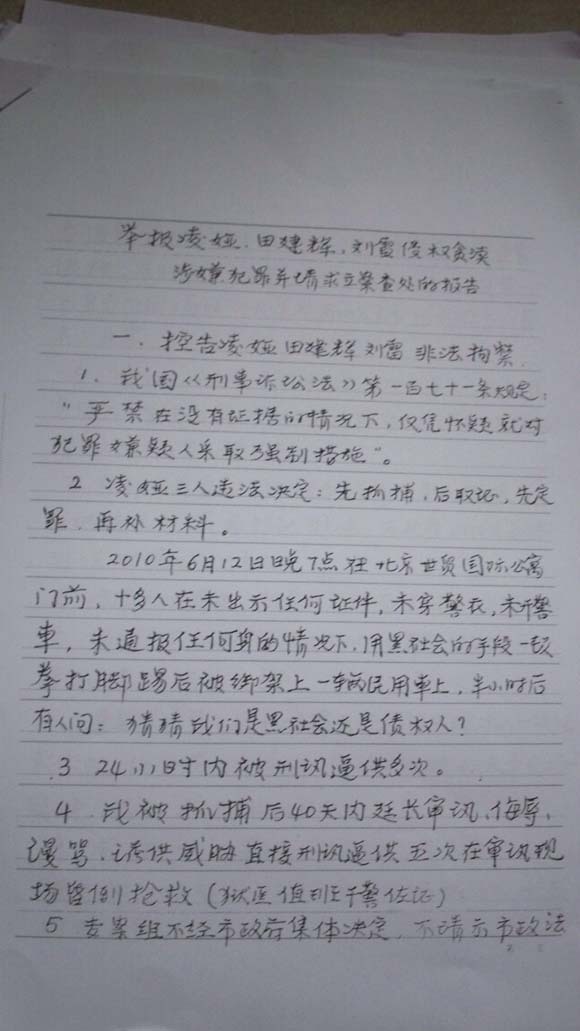 举报凌娅.田建辉.刘雷侵权贪渎
涉嫌犯罪并请求立案查处的报告
一、控告凌娅田建辉刘雷非法拘禁.
1、我国《刑事诉讼法》第一百七十一条规定:
"严禁在没有证据的情况下,仅凭怀疑就对
犯罪嫌疑人采取强制措施"。
2 凌娅三人违法决定:先抓捕,后取证,先定
罪.再补材料。
2010年6月12日晚7点在北京世贸国际公寓
门前,十多人在未出示任何证件,未穿警衣,未开警
車,未通报任何身的情况下,用黑社会的手段一顿
拳打脚踢后被绑架上一辆民用车上,半小时后
有人问:猜猜我们是黑社会还是债权人?
3 24小时内被刑讯逼供多次。
4.我被抓捕后40天内延长审讯、侮辱、
谩骂.诱供威胁直接刑讯逼供五次在审讯现
场昏倒抢救(狱医值班干警佐证)
5 专案组不经市政府集体决定,不请示市政法